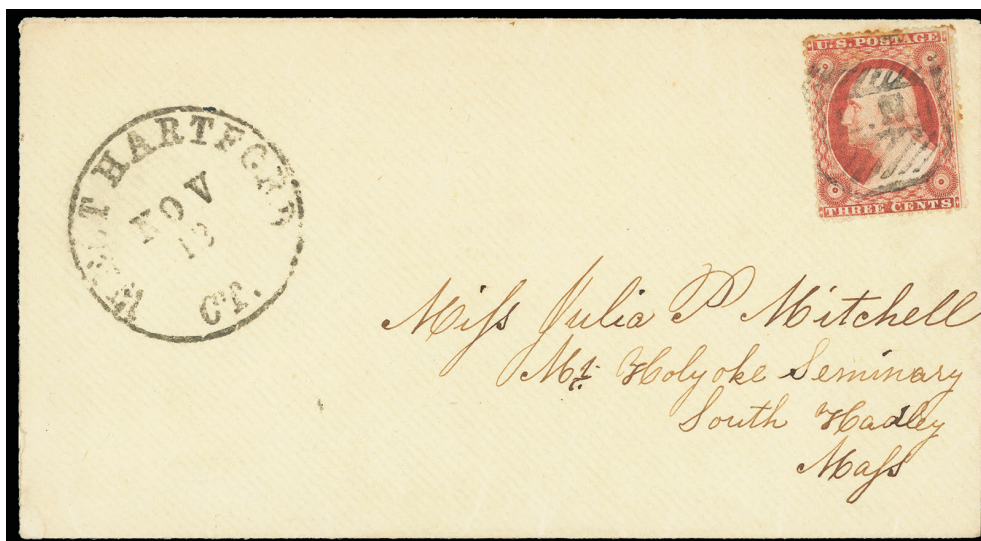 WEST HARTFORD
NOV
13
CT.
U.S. POSTAGE
THREE CENTS
Miſs Julia P Mitchell
Mt. Holyoke Seminary
South Hadley
Maſs